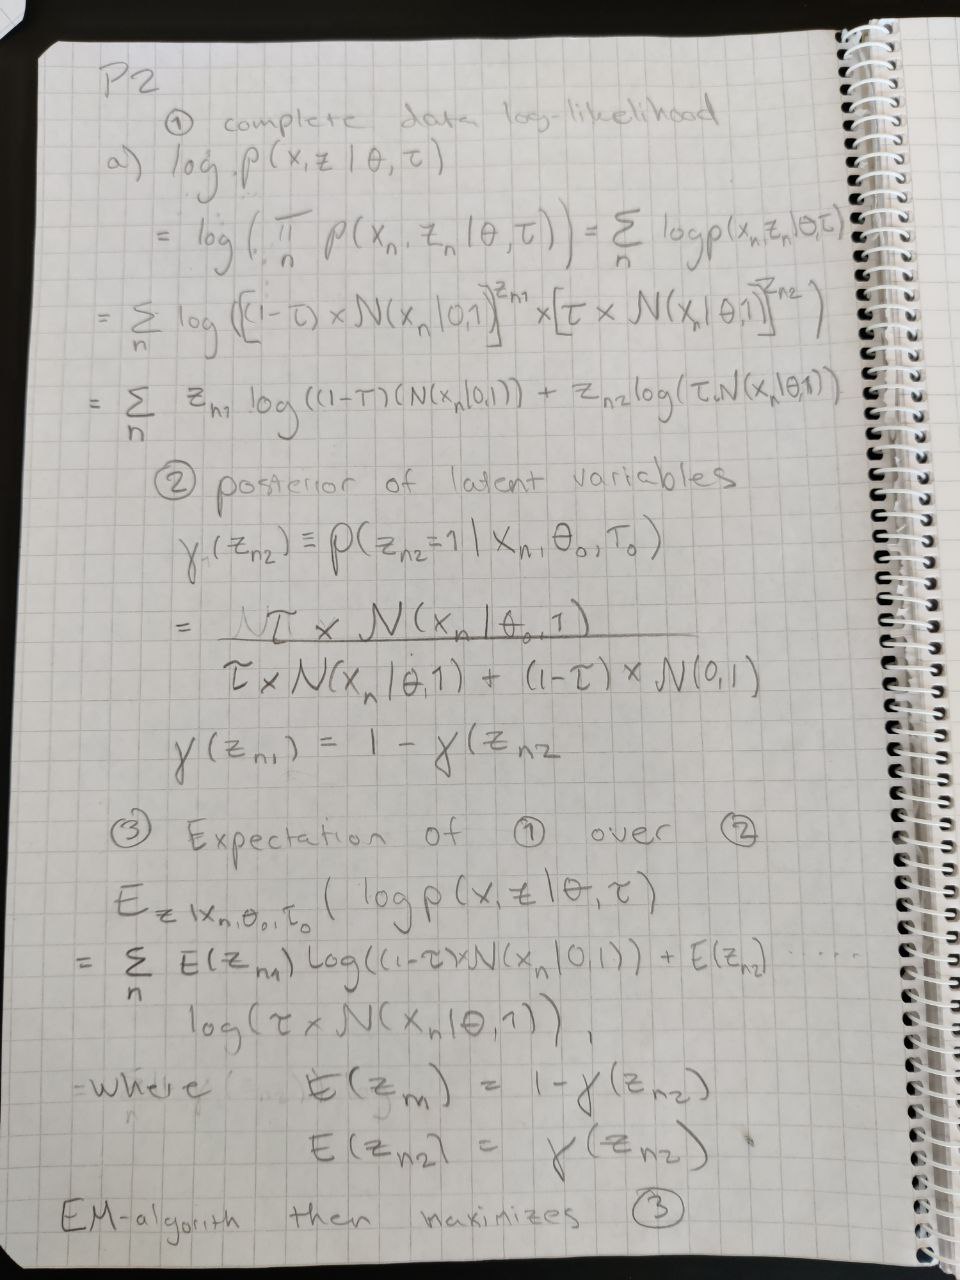 P2
① complete data log-likelihood
a) log p(x, z | θ, τ)
= log( π n p(xn, zn | θ, τ)) = Σ n log p(xn, zn | θ, τ)
= Σ n log([(1-τ) × N(xn|0,1)]^zn1 × [τ × N(xn|θ,1)]^zn2)
= Σ n zn1 log((1-τ)(N(xn|0,1)) + zn2 log(τ.N(xn|θ,1))
② posterior of latent variables
γ(zn2) ≡ p(zn2=1 | xn, θ0, τ0)
= τ × N(xn | θ0, 1)
τ × N(xn | θ,1) + (1-τ) × N(0,1)
γ(zn1) = 1 - γ(zn2
③ Expectation of ① over ②
E z|xn,θ0,τ0 ( log p(x, z | θ, τ)
= Σ n E(zn1) log((1-τ)×N(xn|0,1)) + E(zn2) .....
log(τ × N(xn|θ,1)),
where E(zn1) = 1-γ(zn2)
E(zn2) = γ(zn2).
EM-algorith then maximizes ③